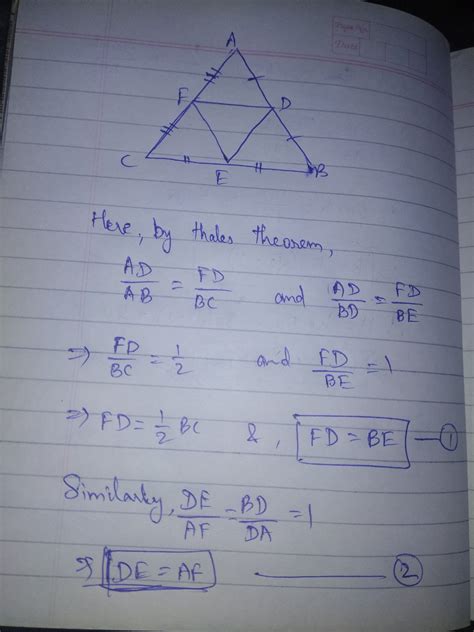 Page No.
Date
A
F
D
C
E
B
Here, by thales theorem,
AD/AB = FD/BC and AD/BD = FD/BE
⇒ FD/BC = 1/2 and FD/BE = 1
⇒ FD = 1/2 BC & , FD = BE — ①
Similarly, DE/AF = BD/DA = 1
⇒ DE = AF — ②